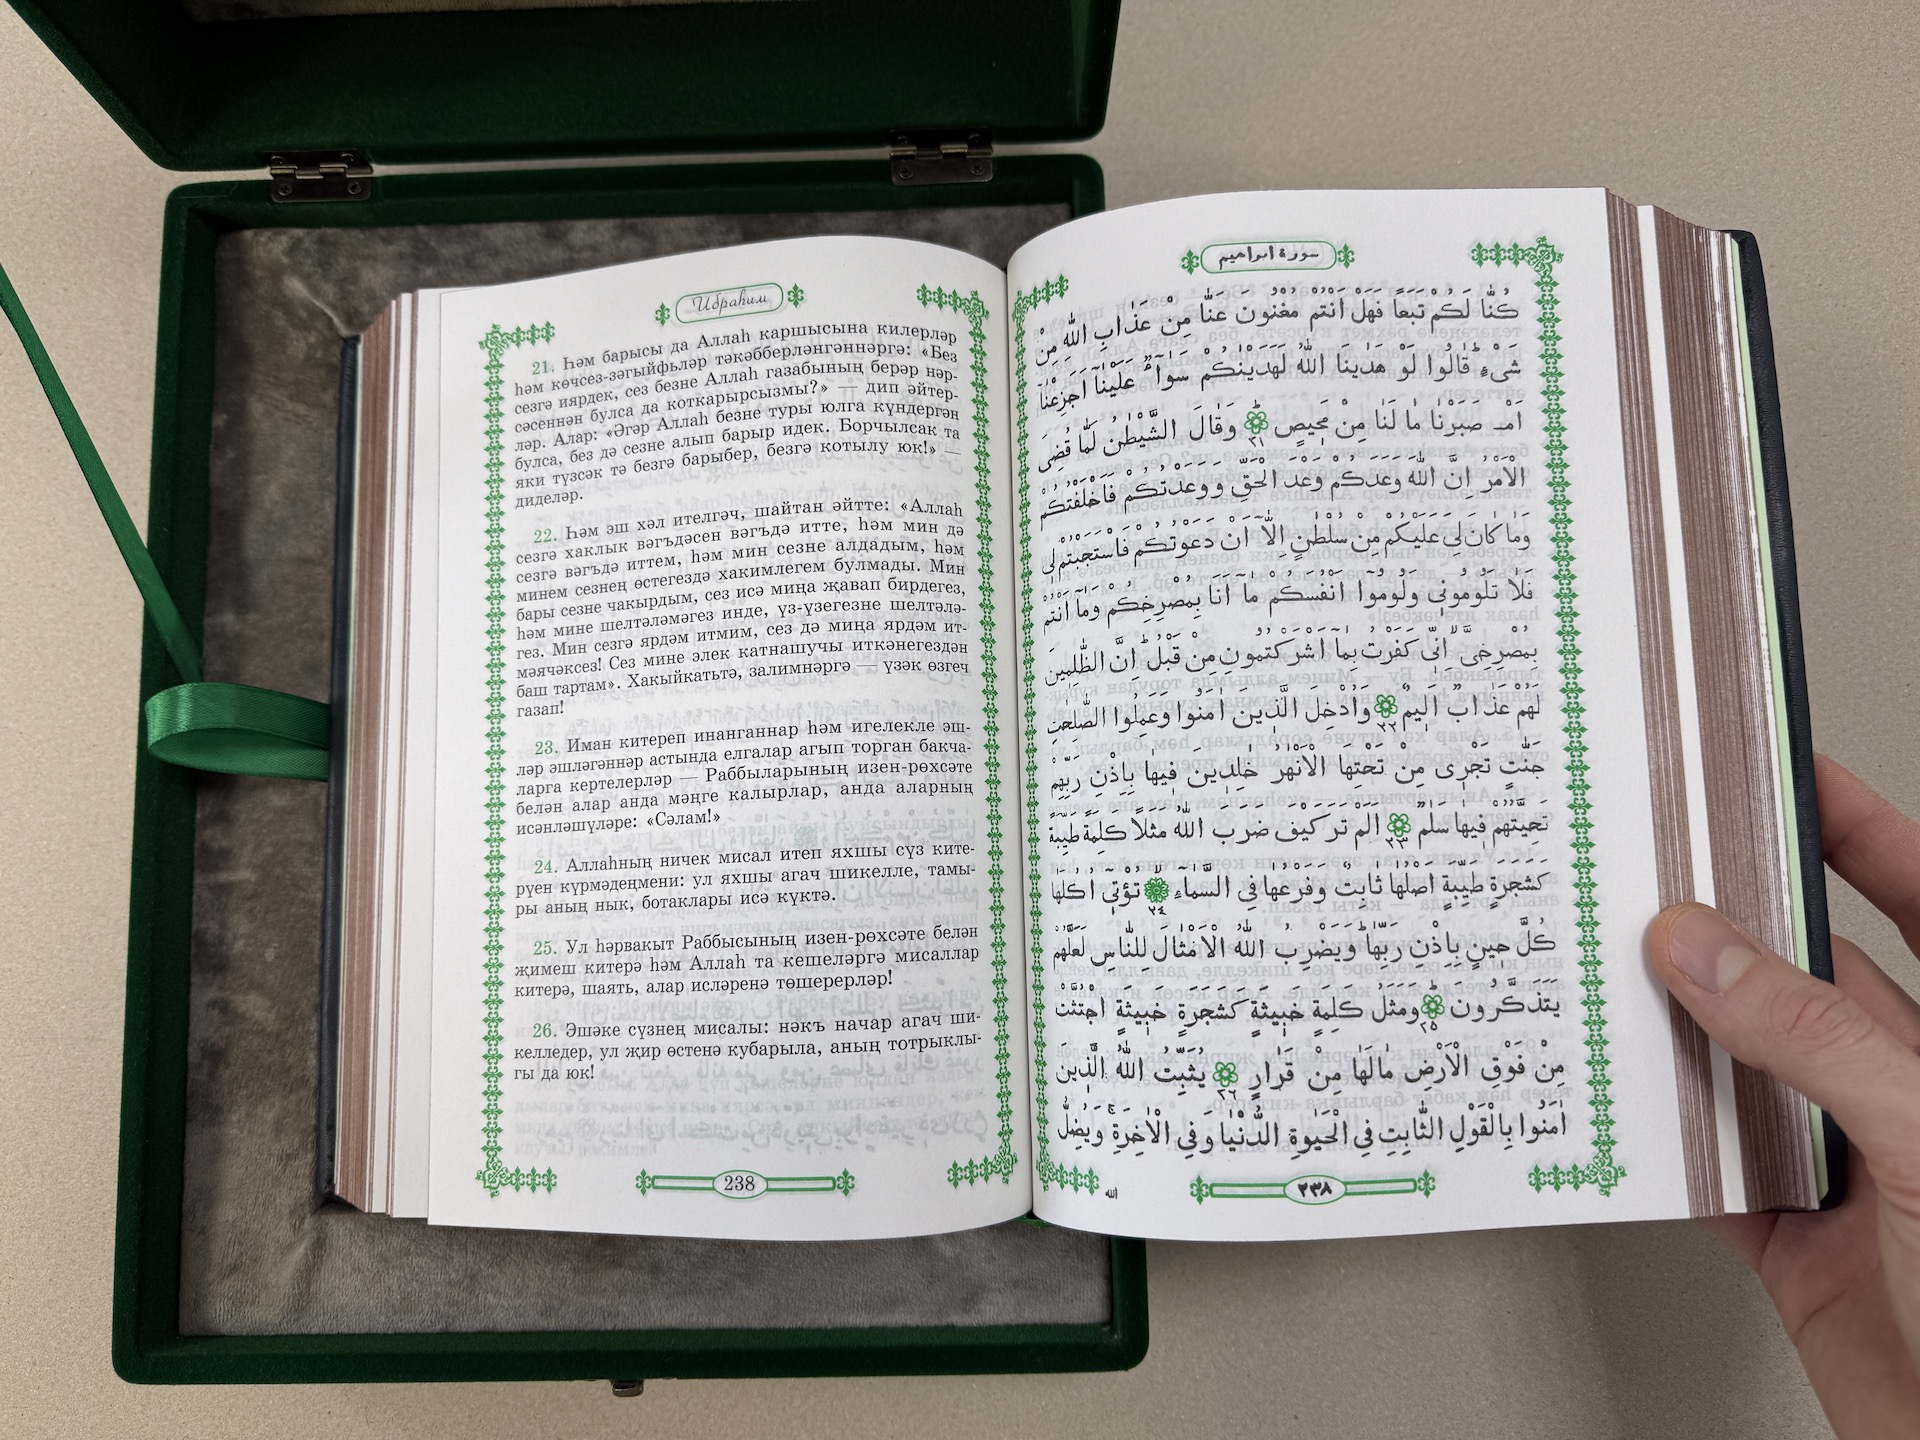 Ибраһим
21. Һәм барысы да Аллаһ каршысына килерләр
һәм көчсез-зәгыйфьләр тәкәбберләнгәннәргә: «Без
сезгә иярдек, сез безне Аллаһ газабының берәр нәр-
сәсеннән булса да коткарырсызмы?» — дип әйтер-
ләр. Алар: «Әгәр Аллаһ безне туры юлга күндергән
булса, без дә сезне алып барыр идек. Борчылсак та
яки түзсәк тә безгә барыбер, безгә котылу юк!» —
диделәр.
22. Һәм эш хәл ителгәч, шайтан әйтте: «Аллаһ
сезгә хаклык вәгъдәсен вәгъдә итте, һәм мин дә
сезгә вәгъдә иттем, һәм мин сезне алдадым, һәм
минем сезнең өстегездә хакимлегем булмады. Мин
бары сезне чакырдым, сез исә миңа җавап бирдегез,
һәм мине шелтәләмәгез инде, үз-үзегезне шелтәлә-
гез. Мин сезгә ярдәм итмим, сез дә миңа ярдәм ит-
мәячәксез! Сез мине элек катнашучы иткәнегездән
баш тартам». Хакыйкатьтә, залимнәргә — үзәк өзгеч
газап!
23. Иман китереп инанганнар һәм игелекле эш-
ләр эшләгәннәр астында елгалар агып торган бакча-
ларга кертелерләр — Раббыларының изен-рөхсәте
белән алар анда мәңге калырлар, анда аларның
исәнләшүләре: «Сәлам!»
24. Аллаһның ничек мисал итеп яхшы сүз ките-
рүен күрмәдеңмени: ул яхшы агач шикелле, тамы-
ры аның нык, ботаклары исә күктә.
25. Ул һәрвакыт Раббысының изен-рөхсәте белән
җимеш китерә һәм Аллаһ та кешеләргә мисаллар
китерә, шаять, алар исләренә төшерерләр!
26. Эшәке сүзнең мисалы: нәкъ начар агач ши-
келледер, ул җир өстенә кубарыла, аның тотрыклы-
гы да юк!
238
سورة ابراهيم
كُنَّا لَكُمْ تَبَعًا فَهَلْ اَنْتُمْ مُغْنُونَ عَنَّا مِنْ عَذَابِ اللّٰهِ مِنْ
شَىْءٍ قَالُوا لَوْ هَدٰينَا اللّٰهُ لَهَدَيْنٰكُمْ سَوَآءٌ عَلَيْنَآ اَجَزِعْنَآ
اَمْ صَبَرْنَا مَا لَنَا مِنْ مَحِيصٍ ٢١ وَقَالَ الشَّيْطٰنُ لَمَّا قُضِىَ
الْاَمْرُ اِنَّ اللّٰهَ وَعَدَكُمْ وَعْدَ الْحَقِّ وَوَعَدْتُكُمْ فَاَخْلَفْتُكُمْ
وَمَا كَانَ لِىَ عَلَيْكُمْ مِنْ سُلْطٰنٍ اِلَّآ اَنْ دَعَوْتُكُمْ فَاسْتَجَبْتُمْ لِى
فَلَا تَلُومُونِى وَلُومُوٓا اَنْفُسَكُمْ مَآ اَنَا بِمُصْرِخِكُمْ وَمَآ اَنْتُمْ
بِمُصْرِخِىَّ اِنِّى كَفَرْتُ بِمَآ اَشْرَكْتُمُونِ مِنْ قَبْلُ اِنَّ الظّٰلِمِينَ
لَهُمْ عَذَابٌ اَلِيمٌ ٢٢ وَاُدْخِلَ الَّذِينَ اٰمَنُوا وَعَمِلُوا الصّٰلِحٰتِ
جَنّٰتٍ تَجْرِى مِنْ تَحْتِهَا الْاَنْهٰرُ خٰلِدِينَ فِيهَا بِاِذْنِ رَبِّهِمْ
تَحِيَّتُهُمْ فِيهَا سَلٰمٌ ٢٣ اَلَمْ تَرَ كَيْفَ ضَرَبَ اللّٰهُ مَثَلًا كَلِمَةً طَيِّبَةً
كَشَجَرَةٍ طَيِّبَةٍ اَصْلُهَا ثَابِتٌ وَفَرْعُهَا فِى السَّمَآءِ ٢٤ تُؤْتِىٓ اُكُلَهَا
كُلَّ حِينٍ بِاِذْنِ رَبِّهَا وَيَضْرِبُ اللّٰهُ الْاَمْثَالَ لِلنَّاسِ لَعَلَّهُمْ
يَتَذَكَّرُونَ ٢٥ وَمَثَلُ كَلِمَةٍ خَبِيثَةٍ كَشَجَرَةٍ خَبِيثَةٍ اجْتُثَّتْ
مِنْ فَوْقِ الْاَرْضِ مَا لَهَا مِنْ قَرَارٍ ٢٦ يُثَبِّتُ اللّٰهُ الَّذِينَ
اٰمَنُوا بِالْقَوْلِ الثَّابِتِ فِى الْحَيٰوةِ الدُّنْيَا وَفِى الْاٰخِرَةِ وَيُضِلُّ
الله
٢٣٨